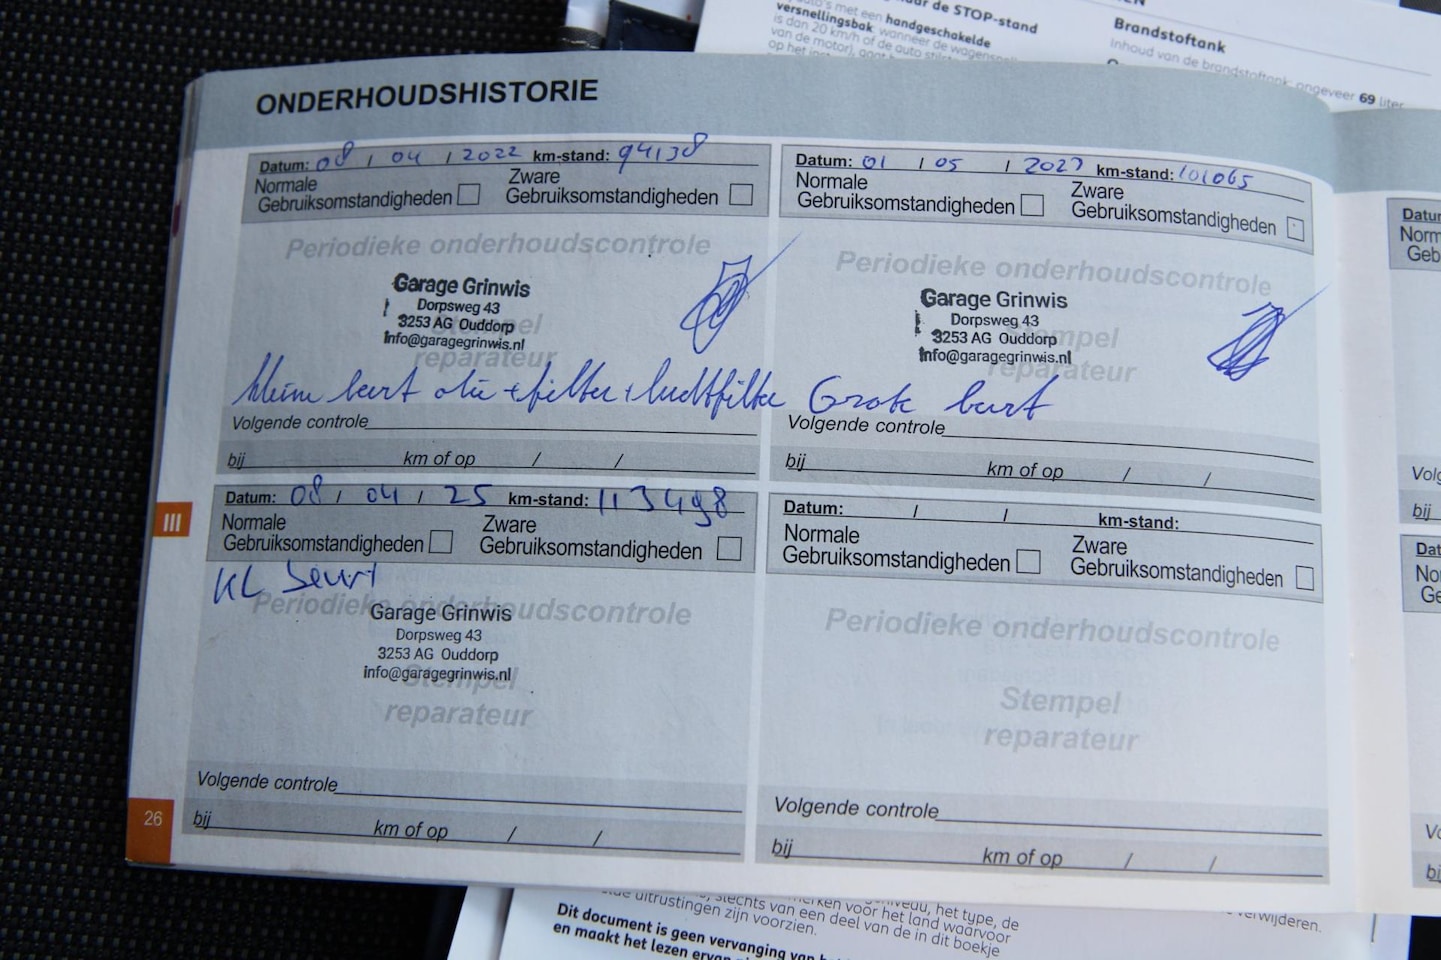 de STOP-stand
versnellingsbak
met een handgeschakelde
wanneer de
is dan 20 km/h of de auto
van de motor)
op het
Brandstoftank
Inhoud van de brandstoftank: ongeveer 69 liter
ONDERHOUDSHISTORIE
Datum: 08 / 04 / 2022 km-stand: 94138
Normale
Gebruiksomstandigheden
Zware
Gebruiksomstandigheden
Periodieke onderhoudscontrole
Garage Grinwis
Dorpsweg 43
3253 AG Ouddorp
Info@garagegrinwis.nl
Stempel
reparateur
kleine beurt olie + filter + luchtfilter
Volgende controle
bij km of op / /
Datum: 01 / 05 / 2023 km-stand: 101065
Normale
Gebruiksomstandigheden
Zware
Gebruiksomstandigheden
Periodieke onderhoudscontrole
Garage Grinwis
Dorpsweg 43
3253 AG Ouddorp
Info@garagegrinwis.nl
Stempel
reparateur
Grote beurt
Volgende controle
bij km of op / /
III
Datum: 08 / 04 / 25 km-stand: 113498
Normale
Gebruiksomstandigheden
Zware
Gebruiksomstandigheden
KL beurt
Periodieke onderhoudscontrole
Garage Grinwis
Dorpsweg 43
3253 AG Ouddorp
info@garagegrinwis.nl
Stempel
reparateur
Volgende controle
bij km of op / /
Datum: / / km-stand:
Normale
Gebruiksomstandigheden
Zware
Gebruiksomstandigheden
Periodieke onderhoudscontrole
Stempel
reparateur
Volgende controle
bij km of op / /
26
het type, de
voor het land waarvoor
uitrustingen zijn voorzien.
slechts van een deel van de in dit boekje
verwijderen.
Dit document is geen vervanging van
en maakt het lezen